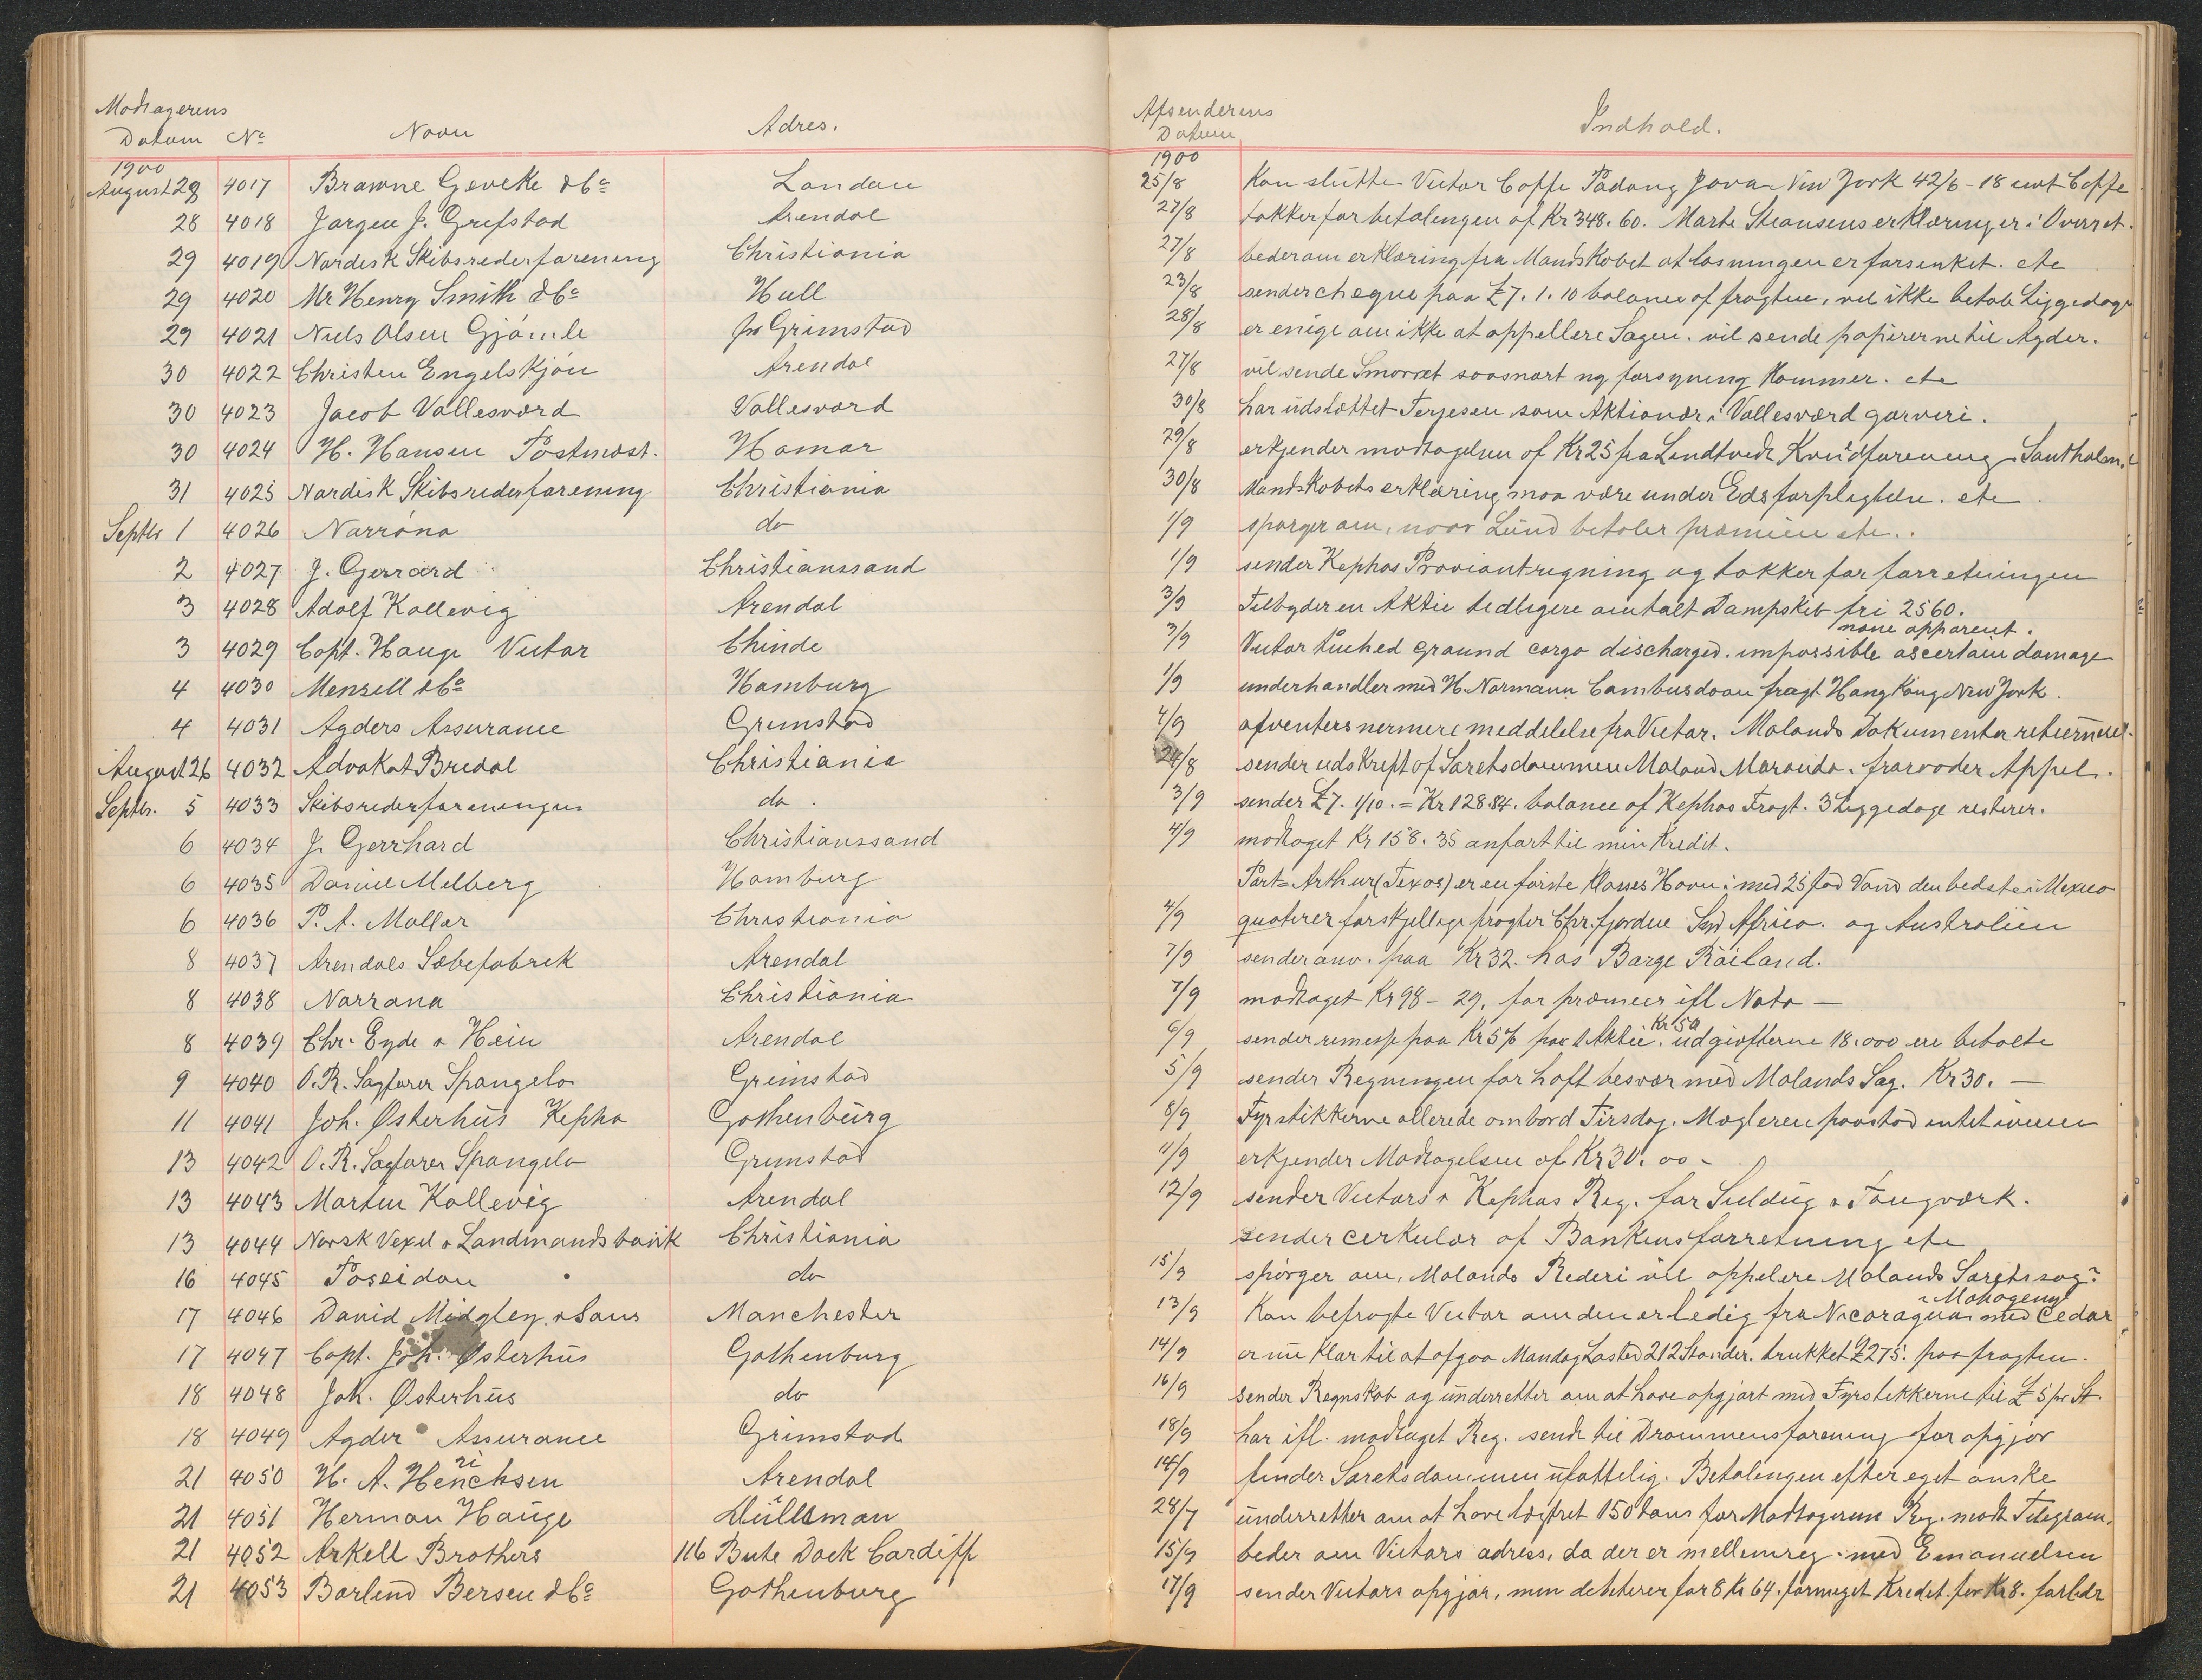 Modtagerens
Datum No Navn Adres. Afsenderens Datum Indhold.
1900 1900
August 28 4017 Browne Geveke & Co London 25/8 Kan slutte Victor Coffe Padang Java New York 42/6 - 18 cwt Coffe
28 4018 Jorgen J. Grefstad Arendal 27/8 takker for betalingen af Kr 348.60. Marte erklæring er i Overret.
29 4019 Nordisk Skibsrederforening Christiania 27/8 beder om erklæring fra Mandskabet at losningen er forsenket. etc
29 4020 Mr Henry Smith & Co Hull 23/8 sender cheque paa £7.1.10 balance af fragten, vil ikke betale Liggedage
29 4021 Niels Olsen Gjömle pr Grimstad 28/8 er enige om ikke at appellere Sagen. vil sende papirerne til Agder.
30 4022 Christen Engelskjön Arendal 27/8 vil sende Smörret saasnart ny forsyning kommer. etc
30 4023 Jacob Vallesværd Vallesværd 30/8 har udslættet Terjesen som Aktionær i Vallesværd garveri.
30 4024 H. Hansen Postmest. Hamar 29/8 erkjender modtagelsen af Kr 25 fra Landtvedt Kvindforening
31 4025 Nordisk Skibsrederforening Christiania 30/8 Mandskabets erklæring maa være under Eds forpligtelse. etc
Septbr 1 4026 Norröna do 1/9 sporger om, naar Lund betaler præmien etc..
2 4027 J. Gerrard Christianssand 1/9 sender Kephas Proviantregning og takker for forretningen
3 4028 Adolf Kallevig Arendal 3/9 Tilbyder en Aktie tidligere omtalt Dampskib fri 2560.
none apparent.
3 4029 Capt. Hauge Victor Chinde 3/9 Victor tuched ground cargo discharged. impossible ascertain damage
4 4030 Menzell & Co Hamburg 1/9 underhandler med H. Normann fragt Hong Kong New York.
4 4031 Agders Assurance Grimstad 4/9 afventers nermere meddelelse fra Victor. Molands Dokumenter
August 26 4032 Advokat Bredal Christiania 24/8 sender udskrift af Søretsdommen Moland Maranda. fraraader Appel.
Septbr. 5 4033 Skibsrederforeningen do. 3/9 sender £7. 1/10. = Kr 128.84. balance af Kephas Fragt. 3 Liggedage resterer.
6 4034 J. Gerrhard Christianssand 4/9 modtaget Kr 158.35 anfört til min Kredit.
6 4035 Daniel Melberg Hamburg Port-Arthur (Texas) er en förste Klasses Havn i med 25 fod Vand den bedste i Mexico
6 4036 P. A. Mollar Christiania 4/9 quoterer forskjellige fragter Chr. fjorden Syd Africa. og Australien
8 4037 Arendals Sæbefabrik Arendal 7/9 sender anv. paa Kr 32. hos Börge Röiland.
8 4038 Norröna Christiania 7/9 modtaget Kr 98 - 29, for præmier ifl Nota —
Kr 50
8 4039 Chr. Eyde & Hein Arendal 6/9 sender remesse paa Kr 5% paa 1 Aktie. udgivfterne 18.000 ere betalte
9 4040 O.R. Sagförer Spangelo Grimstad 5/9 sender Regningen for haft besvær med Molands Sag. Kr 30. —
11 4041 Joh. Østerhus Kepha Gothenburg 8/9 Fyrstikkerne allerede ombord Tirsdag. Mægleren paastod intet
13 4042 O.R. Sagförer Spangelo Grimstad 11/9 erkjender Modtagelsen af Kr 30.00 -
13 4043 Morten Kallevig Arendal 12/9 sender Victors & Kephas Reg. for Seildug & Tougværk.
13 4044 Norsk Vexel & Landmandsbank Christiania sender cerkulær af Bankens forretning etc
16 4045 Poseidon do 15/9 spörger om, Molands Rederi vil appelere Molands Søretssag?
& Mahogeny
17 4046 David Midgley & Sons Manchester 13/9 Kan befragte Victor om den er ledig fra Nicaragua med Cedar
17 4047 Capt. Joh. Østerhus Gothenburg 14/9 er nu klar til at afgaa Mandag Lasted 212 Stander. trukket £275. paa fragten.
18 4048 Joh. Østerhus do 16/9 sender Regnskab og underretter om at have opgjort med Fyrstikkerne til £5 pr St.
18 4049 Agder Assurance Grimstad 18/9 har ifl. modtaget Reg. sendt til Drammensforening for opgjör
ri
21 4050 H. A. Hencksen Arendal 14/9 finder Søretsdommen ufattelig. Betalingen efter eget önske
21 4051 Herman Hauge 28/7 underretter om at have lastet 150 tons for Modtagerens Reg. modt Telegram.
21 4052 Arkell Brothers 116 Bute Dock Cardiff 15/9 beder om Victors adress, da der er mellemreg. med Emanuelsen
21 4053 Barlind Bersen & Co Gothenburg 17/9 sender Victors opgjör, men debiterer for 8 Kr 64. formeget Kredit. for Kr 8.